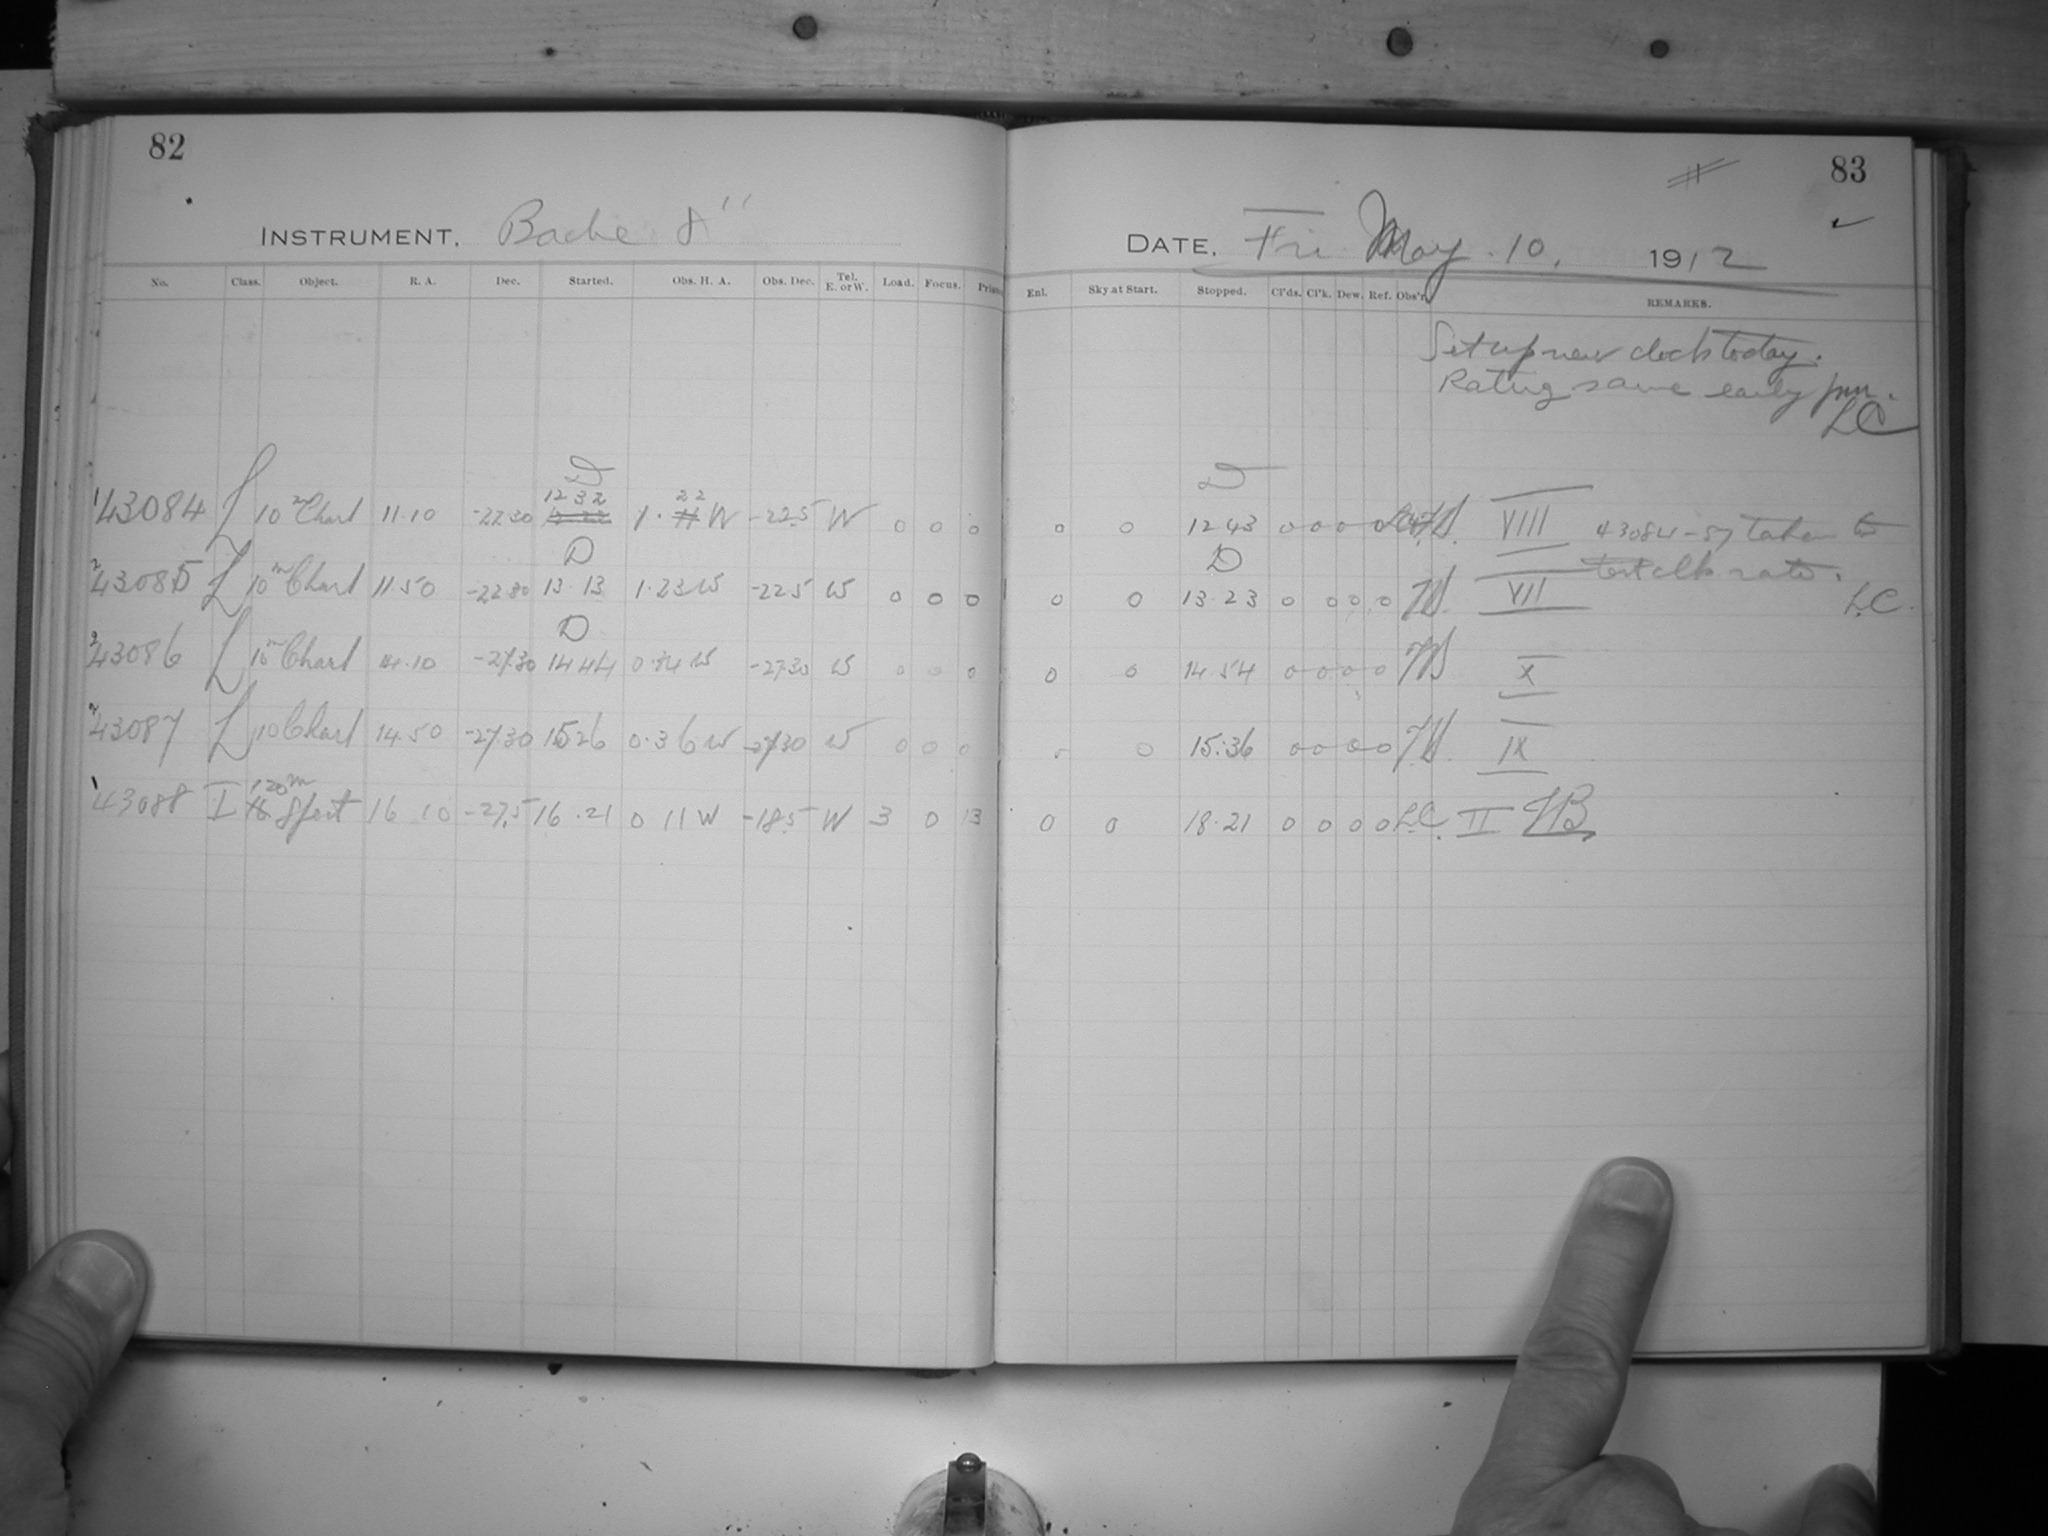 82
83
INSTRUMENT, Bache 8"
DATE, Fri May. 10, 1912
No. Class. Object. R. A. Dec. Started. Obs. H. A. Obs. Dec. Tel. E. or W. Load. Focus.
Enl. Sky at Start. Stopped. Cl'ds. Cl'k. Dew. Ref. Obs'r REMARKS.
Set up new clock today.
Rating same early pm.
L.C
D D
43084 L 10m Chart 11.10 -22 30 12 32 1. 22 W -22.5 W 0 0 0 0 0 12 43 0 0 0 0 VIII 43084-87 taken to
D D
43085 L 10m Chart 11.50 -22 30 13.13 1.23 W -22 5 W 0 0 0 0 0 13.23 0 0 0 0 VII test clk rate. L.C.
D
43086 L 10m Chart 14.10 -27.30 14 44 0.34 W -27 30 W 0 0 0 0 0 14.54 0 0 0 0 X
43087 L 10 Chart 14.50 -27 30 15 26 0.36 W -27 30 W 0 0 0 0 15.36 0 0 0 0 IX
43088 I 120m Spect 16 10 -27.5 16.21 0 11 W -18.5 W 3 0 13 0 0 18.21 0 0 0 0 L.C. II